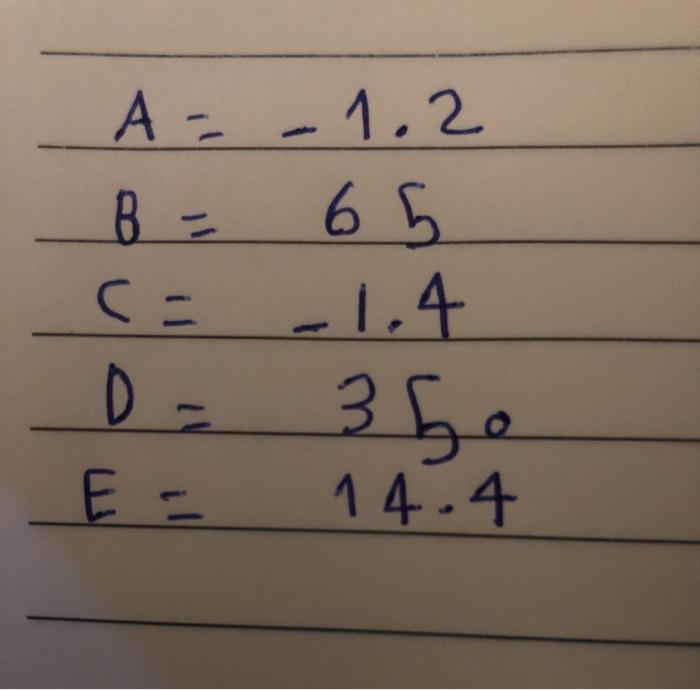 A = -1.2
B = 65
C = -1.4
D = 350
E = 14.4